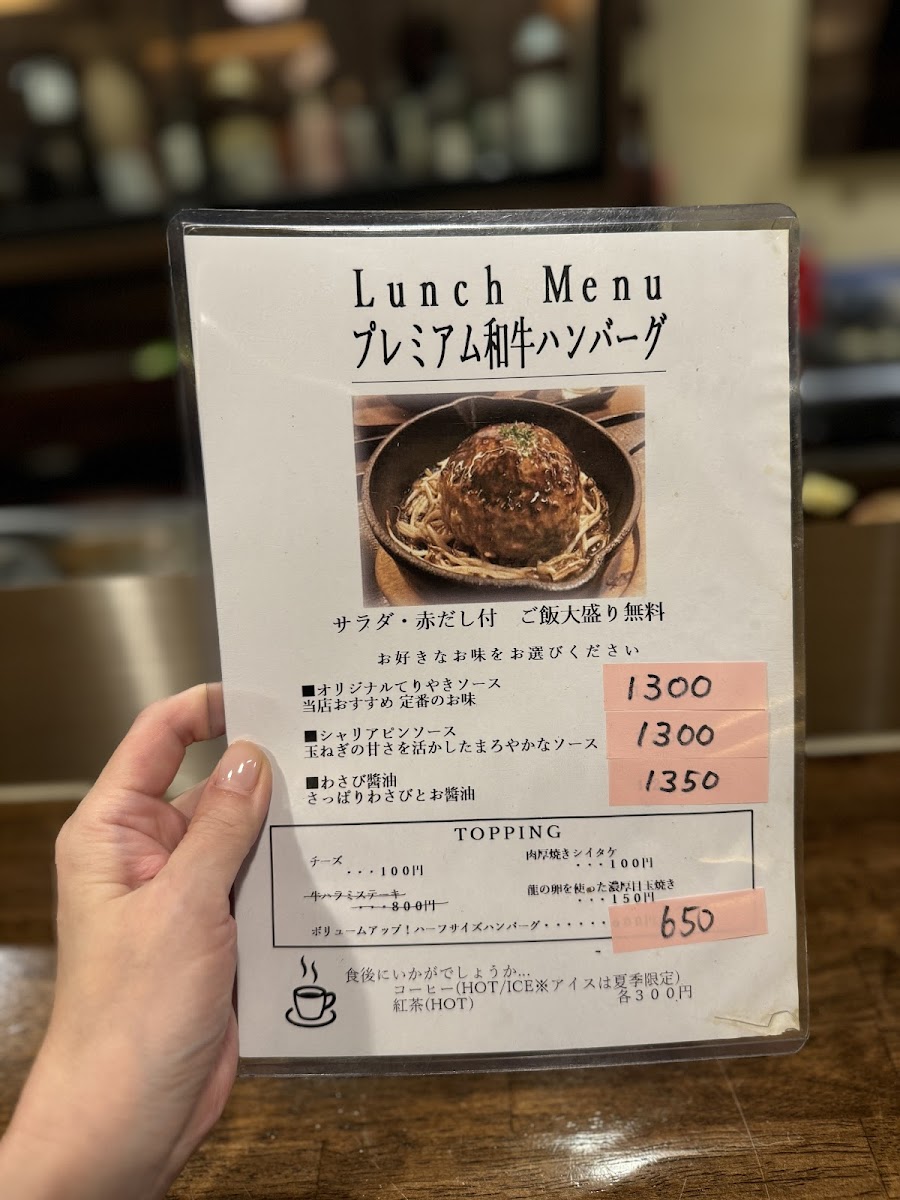 Lunch Menu
プレミアム和牛ハンバーグ
サラダ・赤だし付 ご飯大盛り無料
お好きなお味をお選びください
■オリジナルてりやきソース 1300
当店おすすめ 定番のお味
■シャリアピンソース 1300
玉ねぎの甘さを活かしたまろやかなソース
■わさび醬油 1350
さっぱりわさびとお醬油
TOPPING
チーズ
・・・100円
肉厚焼きシイタケ
・・・100円
牛ハラミステーキ
・・・800円
龍の卵を使った濃厚目玉焼き
・・・150円
ボリュームアップ！ハーフサイズハンバーグ・・・・・・ 650
食後にいかがでしょうか…
コーヒー(HOT/ICE※アイスは夏季限定)
紅茶(HOT) 各300円